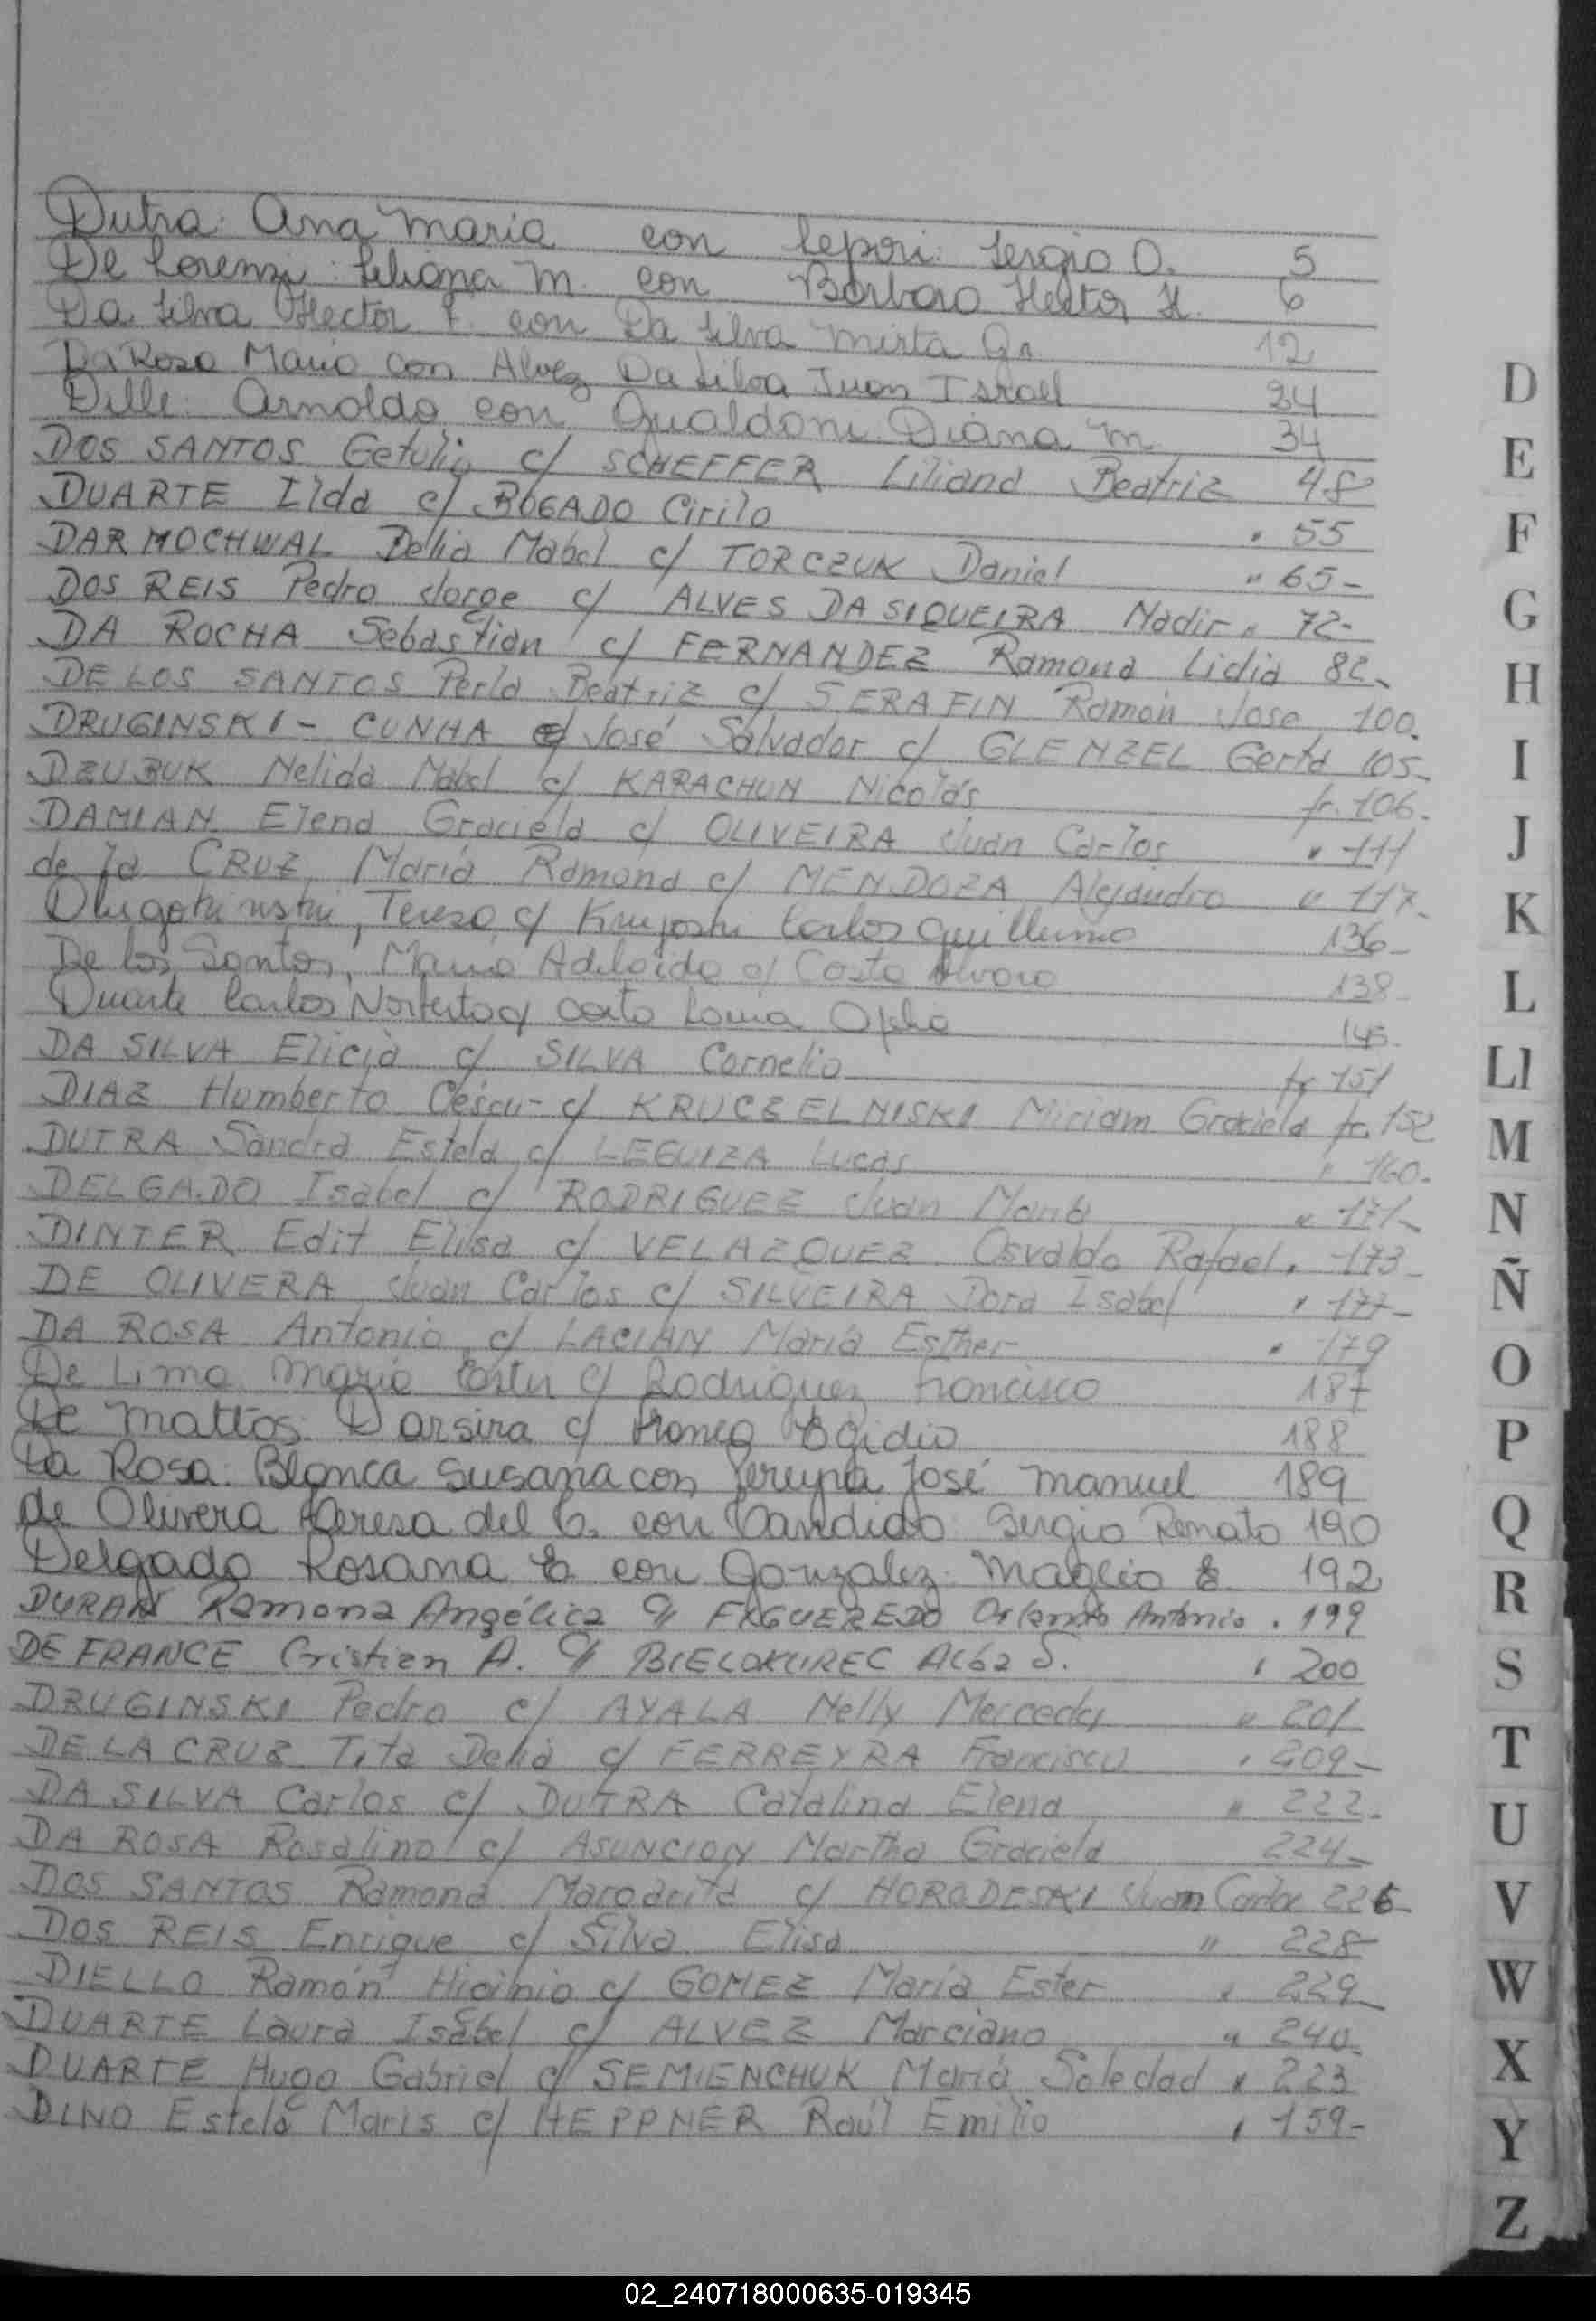 Dutra: Ana Maria con Lepori: Sergio O. 5
De Lorenzi: Liliana M. con Barbaro Hector H. 6
Da Silva Hector F. con Da Silva Mirta Gr. 12
Da Rosa Mario con Alvez Da Silva Juan Israel 24
Dille Arnoldo con Gualdoni Diana M. 34
DOS SANTOS Getulio c/ SCHEFFER Liliana Beatriz 48
DUARTE Ilda c/ BOGADO Cirilo " 55
DARMOCHWAL Delia Mabel c/ TORCZUK Daniel " 65-
DOS REIS Pedro Jorge c/ ALVES DA SIQUEIRA Nadir " 72-
DA ROCHA Sebastian c/ FERNANDEZ Ramona Lidia 82-
DE LOS SANTOS Perla Beatriz c/ SERAFIN Ramón Jose 100.
DRUGINSKI - CUNHA José Salvador c/ GLENZEL Gerta 105-
DZUBUK Nelida Mabel c/ KARACHUN Nicolás fr. 106.
DAMIAN Elena Graciela c/ OLIVEIRA Juan Carlos " 111
de la CRUZ María Ramona c/ MENDOZA Alejandro " 117-
Teresa c/ Carlos Guillermo 136-
De los Santos, Maria Adelaida c/ Costa Alvaro 138-
Duarte Carlos Norberto c/ 145-
DA SILVA Elicia c/ SILVA Cornelio fr 151
DIAZ Humberto César c/ KRUCZELNISKI Miriam Graciela fr. 152
DUTRA Sandra Estela c/ LEGUIZA Lucas " 160.
DELGADO Isabel c/ RODRIGUEZ Juan Mario " 171-
DINTER Edit Elisa c/ VELAZQUEZ Osvaldo Rafael " 173-
DE OLIVERA Juan Carlos c/ SILVEIRA Dora Isabel " 177-
DA ROSA Antonio c/ LACIAN María Esther " 179
De Lima María Ester c/ Rodriguez Francisco 187
De Mattos: Darsira c/ Franco Egidio 188
Da Rosa: Blanca Susana con Pereyra José Manuel 189
de Olivera Teresa del C. con Candido Sergio Renato 190
Delgado Rosana E. con Gonzalez: Maglio E. 192
DURAN Ramona Angélica c/ FIGUEREDO Orlando Antonio " 199
DE FRANCE Cristian A. c/ BIELOKUREC Alba S. " 200
DRUGINSKI Pedro c/ AYALA Nelly Mercedes " 201
DE LA CRUZ Tita Delia c/ FERREYRA Francisco " 209-
DA SILVA Carlos c/ DUTRA Catalina Elena " 222-
DA ROSA Rosalino c/ ASUNCION Martha Graciela 224-
DOS SANTOS Ramona Margarita c/ HORODESKI Juan Carlos 226-
DOS REIS Enrique c/ Silva Elisa " 228-
DIELLO Ramón Higinio c/ GOMEZ María Ester " 229-
DUARTE Laura Isabel c/ ALVEZ Marciano " 240-
DUARTE Hugo Gabriel c/ SEMIENCHUK María Soledad " 223
DINO Estela Maris c/ HEPPNER Raúl Emilio " 159-
D
E
F
G
H
I
J
K
L
Ll
M
N
Ñ
O
P
Q
R
S
T
U
V
W
X
Y
Z
02_240718000635-019345